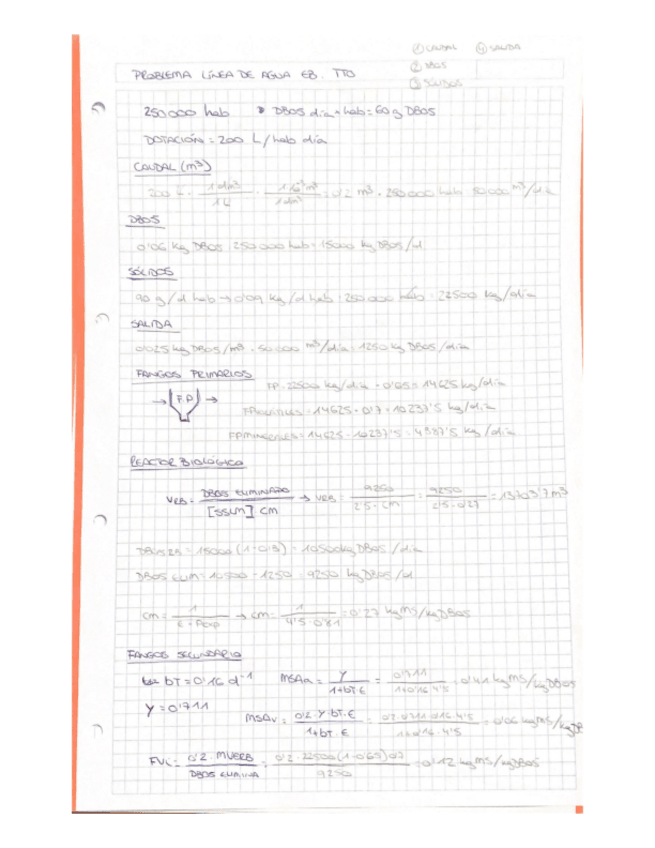 ① CAUDAL ④ SALIDA
② DBO5
③ SÓLIDOS
PROBLEMA LÍNEA DE AGUA EB. TTO
250000 hab DBO5 día · hab = 60 g DBO5
DOTACIÓN = 200 L/hab día
CAUDAL (m³)
200 L · 1 dm³ / 1 L · m³ / 1 dm³ = 0'2 m³ · 250000 hab = 50000 m³/día
DBO5
0'06 kg DBO5 · 250000 hab = 15000 kg DBO5/d
SÓLIDOS
90 g/d hab → 0'09 kg/d hab · 250000 hab = 22500 kg/día
SALIDA
0'025 kg DBO5/m³ · 50000 m³/día = 1250 kg DBO5/día
FANGOS PRIMARIOS
FP = 22500 kg/día · = 14625 kg/día
→ F.P →
FP = 14625 · 0'7 = 10237'5 kg/día
FP = 14625 - 10237'5 = 4387'5 kg/día
REACTOR BIOLÓGICO
VRB = DBO5 ELIMINADO / [SSLM] CM → VRB = 9250 / 2'5 · CM = 9250 / 2'5 · 0'27 = 13703'7 m³
15000 (1-0'3) = 10500 kg DBO5/día
DBO5 ELIM = 10500 - 1250 = 9250 kg DBO5/d
CM = 1 / → CM = 1 / 4'5 · 0'81 = 0'27 kg MS/kg DBO5
FANGOS SECUNDARIO
bT = 0'16 d⁻¹ MSAa = Y / 1+bT·E = 0'711 / 1+0'16·4'5 = 0'41 kg MS/kg DBO5
Y = 0'711
MSAv = 0'2·Y·bT·E / 1+bT·E = 0'2·0'711·0'16·4'5 / 1+0'16·4'5 = 0'06 kg MS/kg DB
FVi = 0'2 · MVERB / DBO5 ELIMINA = 0'2 · 22500 (1-0'65) 0'7 / 9250 = 0'12 kg MS/kg DBO5